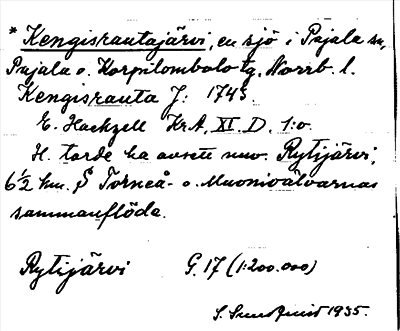 * Kengisrautajärvi, en sjö i Pajala sn,
Pajala o. Korpilombolo tg, Norrb. l.
Kengisrauta J: 1743
E. Hackzell Kr.A, XI. D. 1:o.
H. torde ha avsett nuv. Rytijärvi,
6½ km. S Torneå- o. Muonioälvarnas
sammanflöde.
Rytijärvi G. 17 (1:200.000)
S. Sundquist 1935.